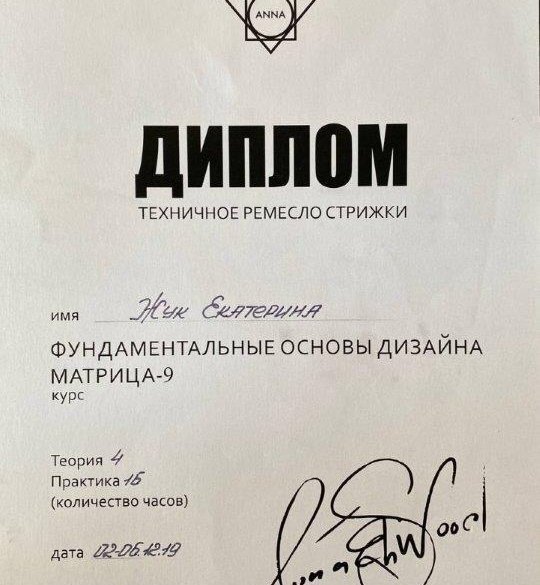 ANNA
ДИПЛОМ
ТЕХНИЧНОЕ РЕМЕСЛО СТРИЖКИ
имя Жук Екатерина
ФУНДАМЕНТАЛЬНЫЕ ОСНОВЫ ДИЗАЙНА
МАТРИЦА-9
курс
Теория 4
Практика 16
(количество часов)
дата 02-06.12.19